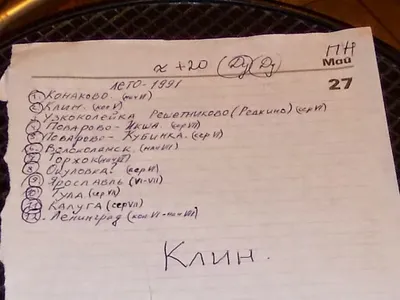 х +20
ПН
Май
27
ЛЕТО-1991
1 КОНАКОВО. (нач VI)
2 КЛИН. (кон V)
3 УЗКОКОЛЕЙКА РЕШЕТНИКОВО (Редкино) (сер VI)
4 ПОВАРОВО - ИКША. (сер VII)
5 ПОВАРОВО - КУБИНКА. (сер VII)
6 ВОЛОКОЛАМСК. (нач VII)
7 ТОРЖОК
8 ОКУЛОВКА. (сер VI)
9 ЯРОСЛАВЛЬ (VI-VII)
10 ТУЛА (сер VII)
11 КАЛУГА (сер VII)
12 ЛЕНИНГРАД (кон VI - нач VII)
КЛИН.